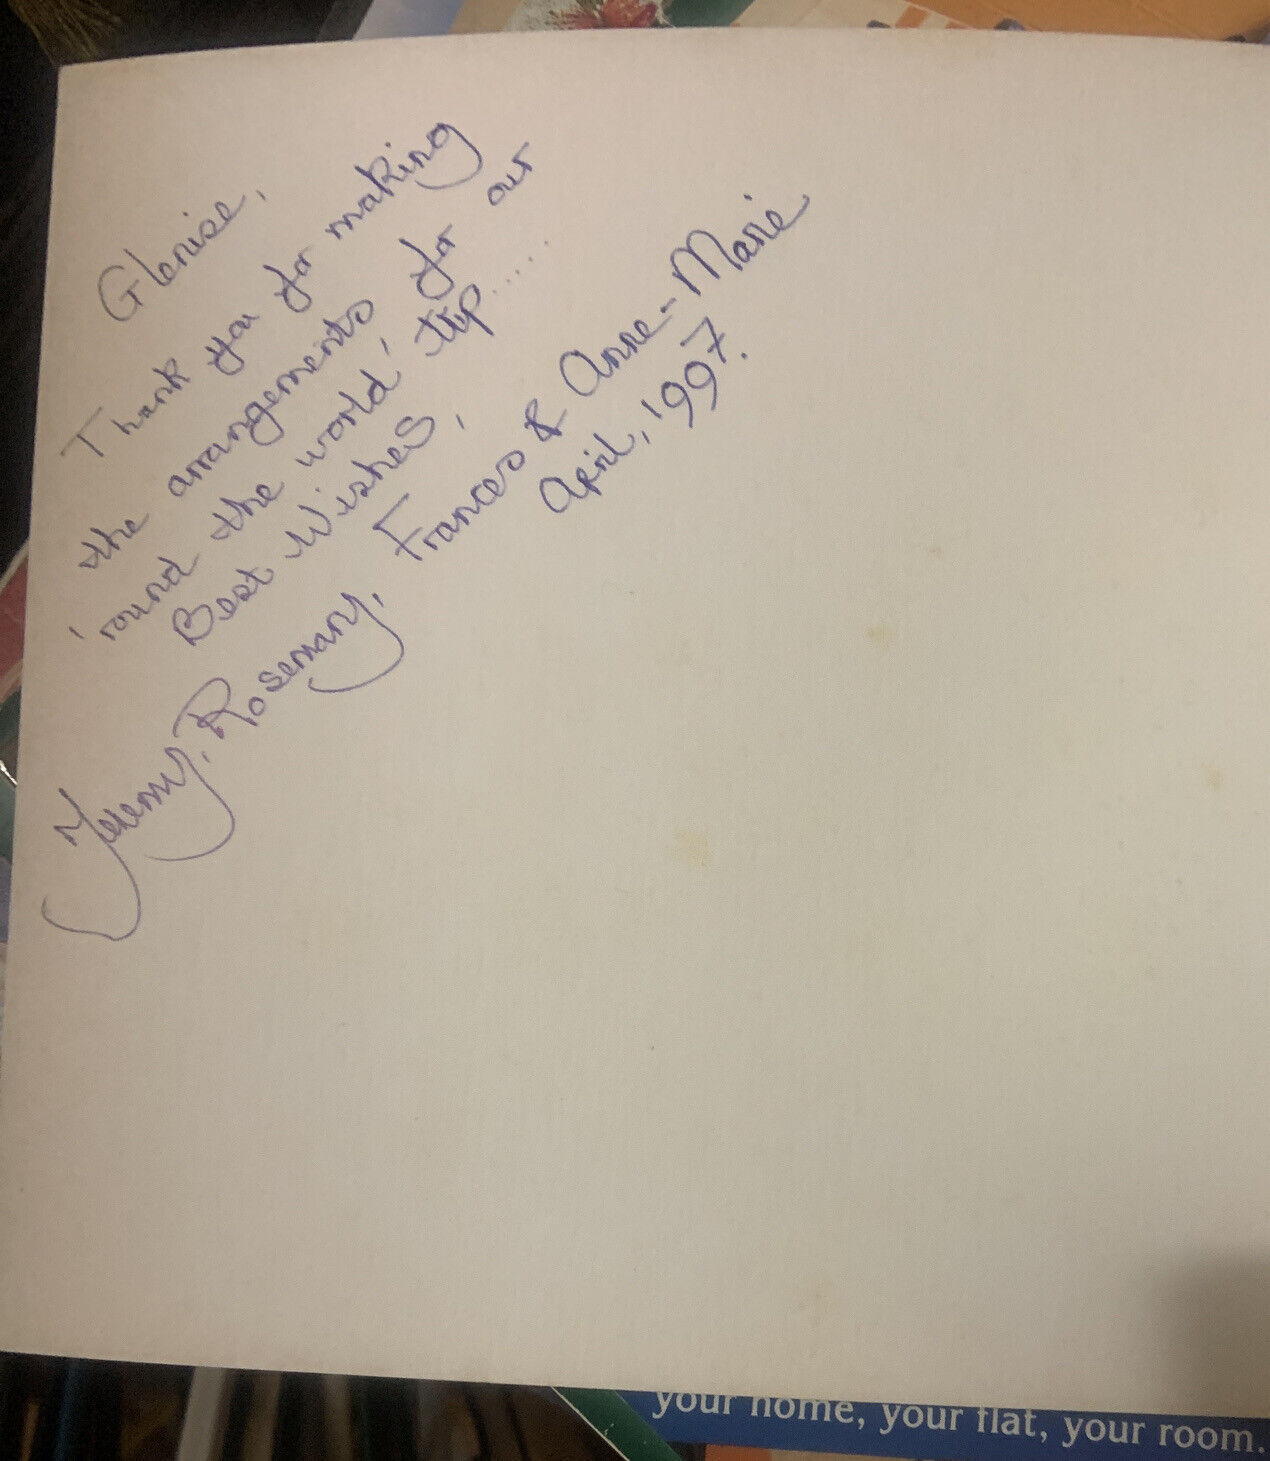 Glenise,
Thank you for making
the arrangements for our
'round the world' trip.....
Best Wishes,
Jeremy, Rosemary, Frances & Anne-Marie
April, '997.
your home, your flat, your room.